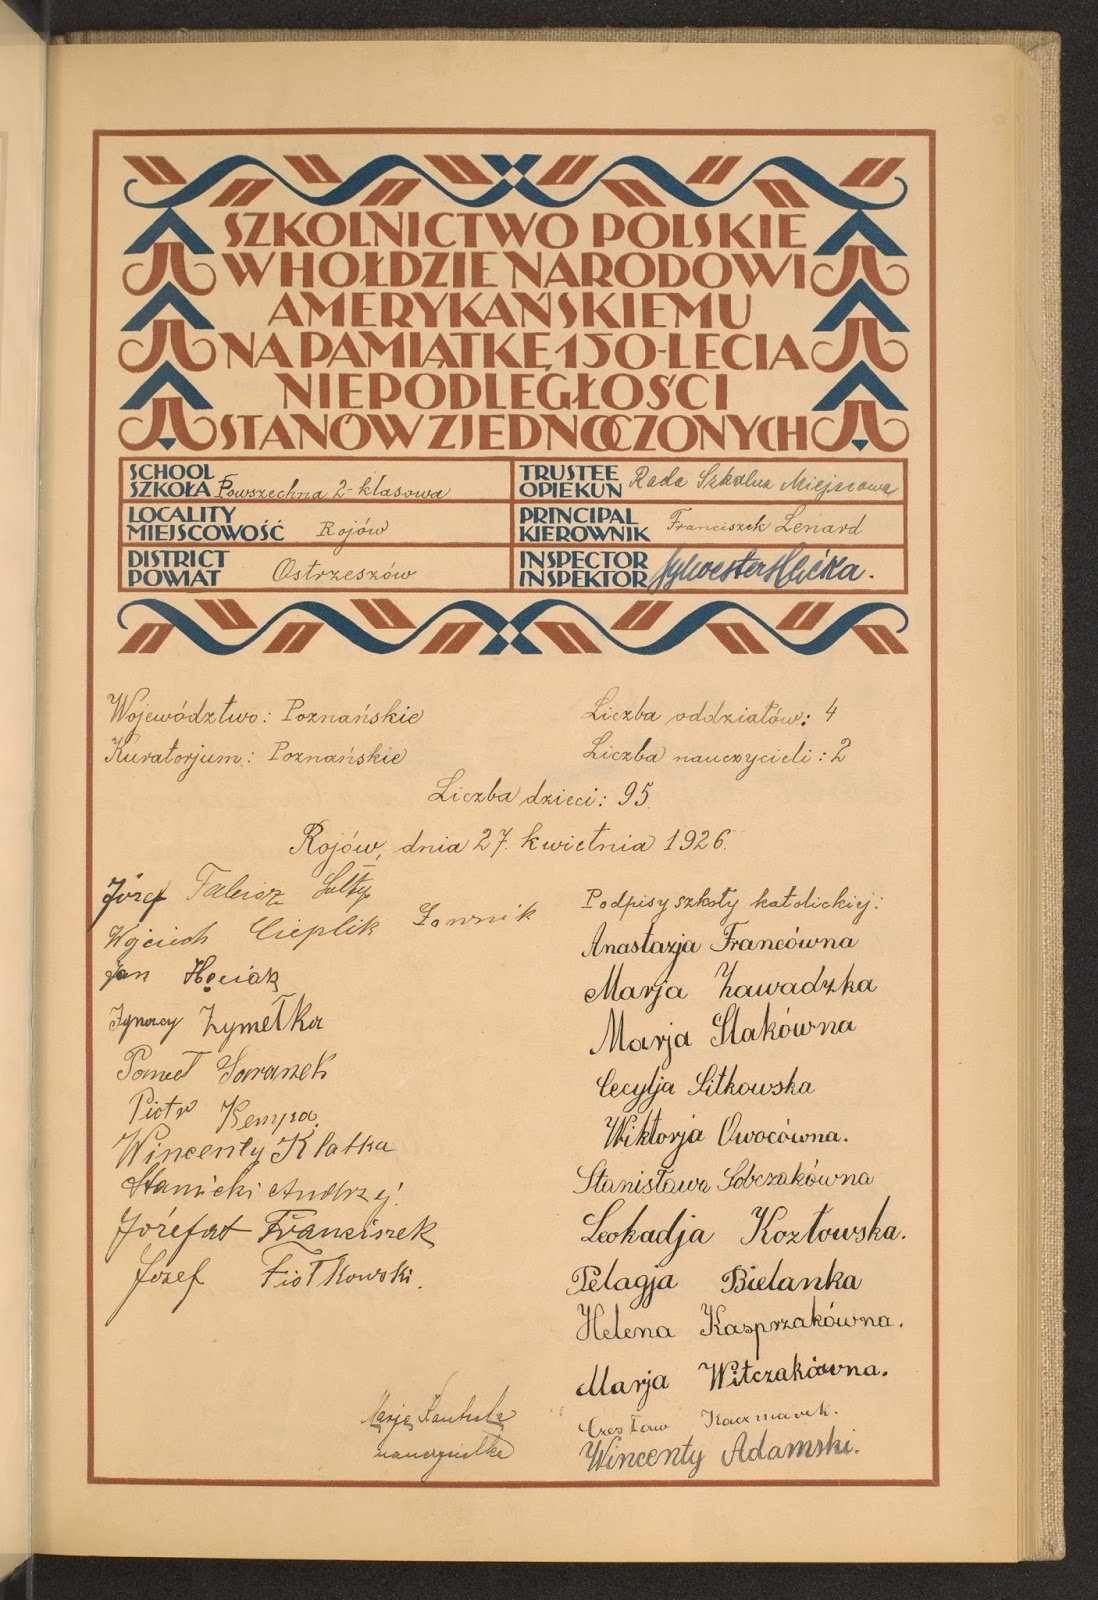 SZKOLNICTWO POLSKIE
W HOŁDZIE NARODOWI
AMERYKAŃSKIEMU
NA PAMIĄTKĘ 150-LECIA
NIEPODLEGŁOŚCI
STANÓW ZJEDNOCZONYCH
SCHOOL
SZKOŁA Powszechna 2-klasowa
TRUSTEE
OPIEKUN Rada Szkolna Miejscowa
LOCALITY
MIEJSCOWOŚĆ Rojów
PRINCIPAL
KIEROWNIK Franciszek Lenard
DISTRICT
POWIAT Ostrzeszów
INSPECTOR
INSPEKTOR Sylwester
Województwo: Poznańskie
Liczba oddziałów: 4
Kuratorjum: Poznańskie
Liczba nauczycieli: 2
Liczba dzieci: 95.
Rojów, dnia 27. kwietnia 1926.
Józef
Wojciech Cieplik Ławnik
Jan
Ignacy Zymełka
Paweł
Piotr Kempa
Wincenty Klatka
Stanicki Andrzej
Józefat Franciszek
Józef Fiołkowski.
Marja
nauczycielka
Podpisy szkoły katolickiej:
Anastazja Francówna
Marja Zawadzka
Marja Stakówna
Cecylja Sitkowska
Wiktorja Owocówna.
Stanisława Sobczakówna
Leokadja Kozłowska.
Pelagja Bielanka
Helena Kasprzakówna.
Marja Witczakówna.
Czesław Kaczmarek.
Wincenty Adamski.